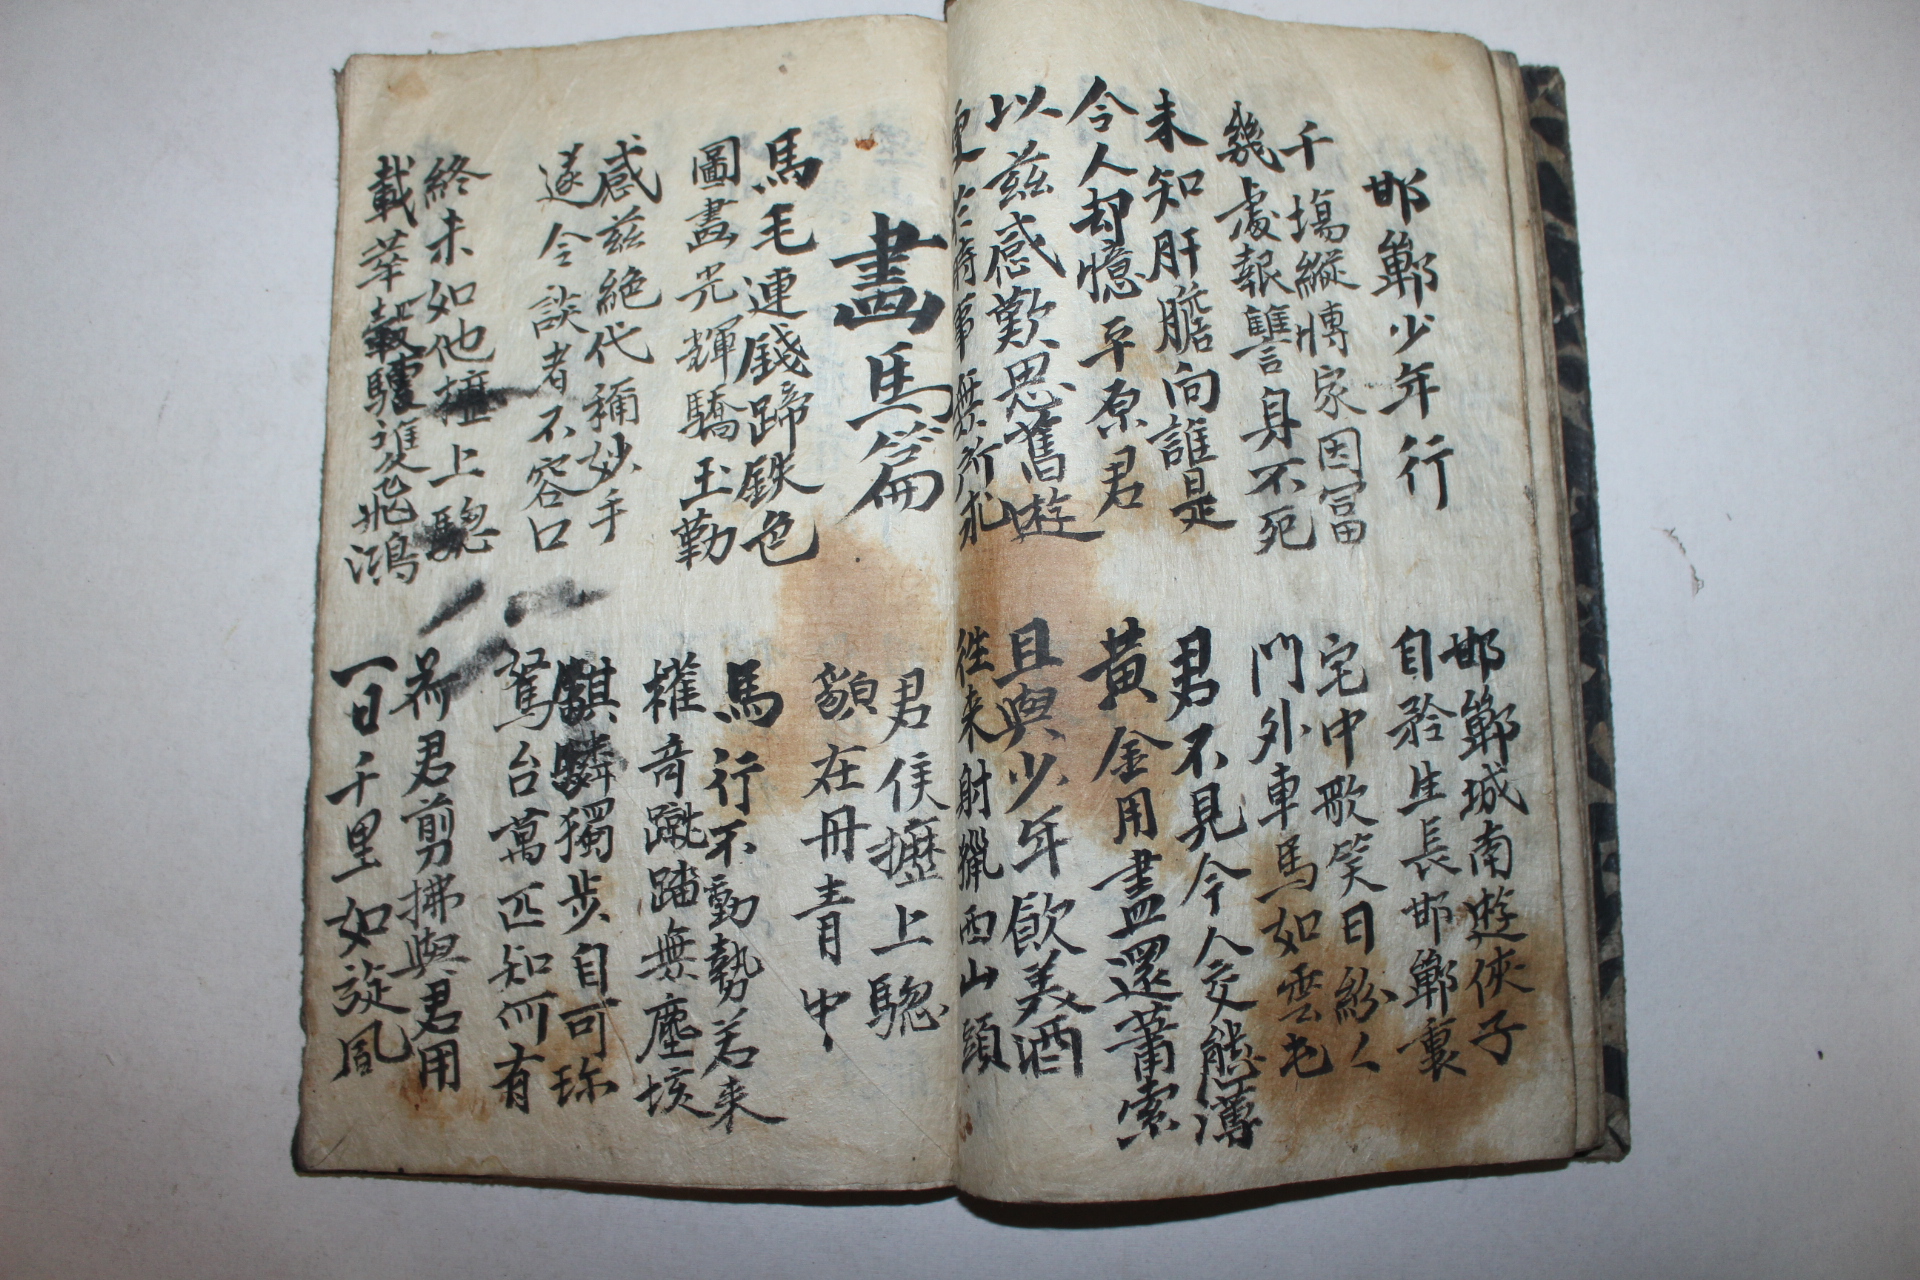 邯鄲少年行
邯鄲城南遊俠子
自矜生長邯鄲裏
千塲縱博家因冨
幾處報讐身不死
宅中歌笑日紛〻
門外車馬如雲屯
未知肝膽向誰是
令人却憶平原君
君不見今人交態薄
黃金用盡還蕭索
以兹感歎思舊遊
更於時事無所求
且與少年飮美酒
徃来射獵西山頭
畫馬篇
君侯攊上驄
貌在冊青中
馬毛連錢蹄鉄色
圖畫光輝驕玉勒
馬行不動勢若来
權奇蹴踏無塵垓
感兹絶代稱妙手
遂令談者不容口
騏驎獨步自可珎
駑台萬匹知何有
終未如他櫪上驄
載華轂飛鴻
荷君剪拂與君用
一日千里如旋風